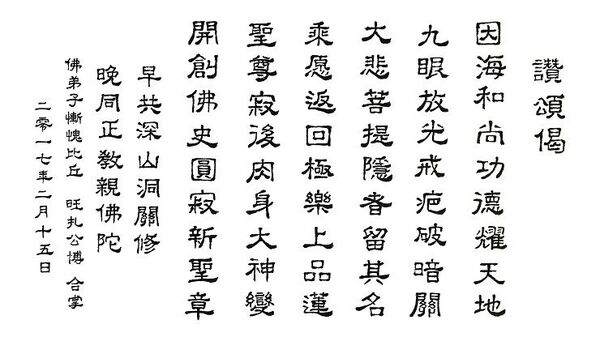 讚頌偈
因海和尚功德耀天地
九眼放光戒疤破暗關
大悲菩提隱者留其名
乘愿返回極樂上品蓮
聖尊寂後肉身大神變
開創佛史圓寂新聖章
早共深山洞關修
晚同正教親佛陀
佛弟子慚愧比丘 旺扎公博 合掌
二零一七年二月十五日